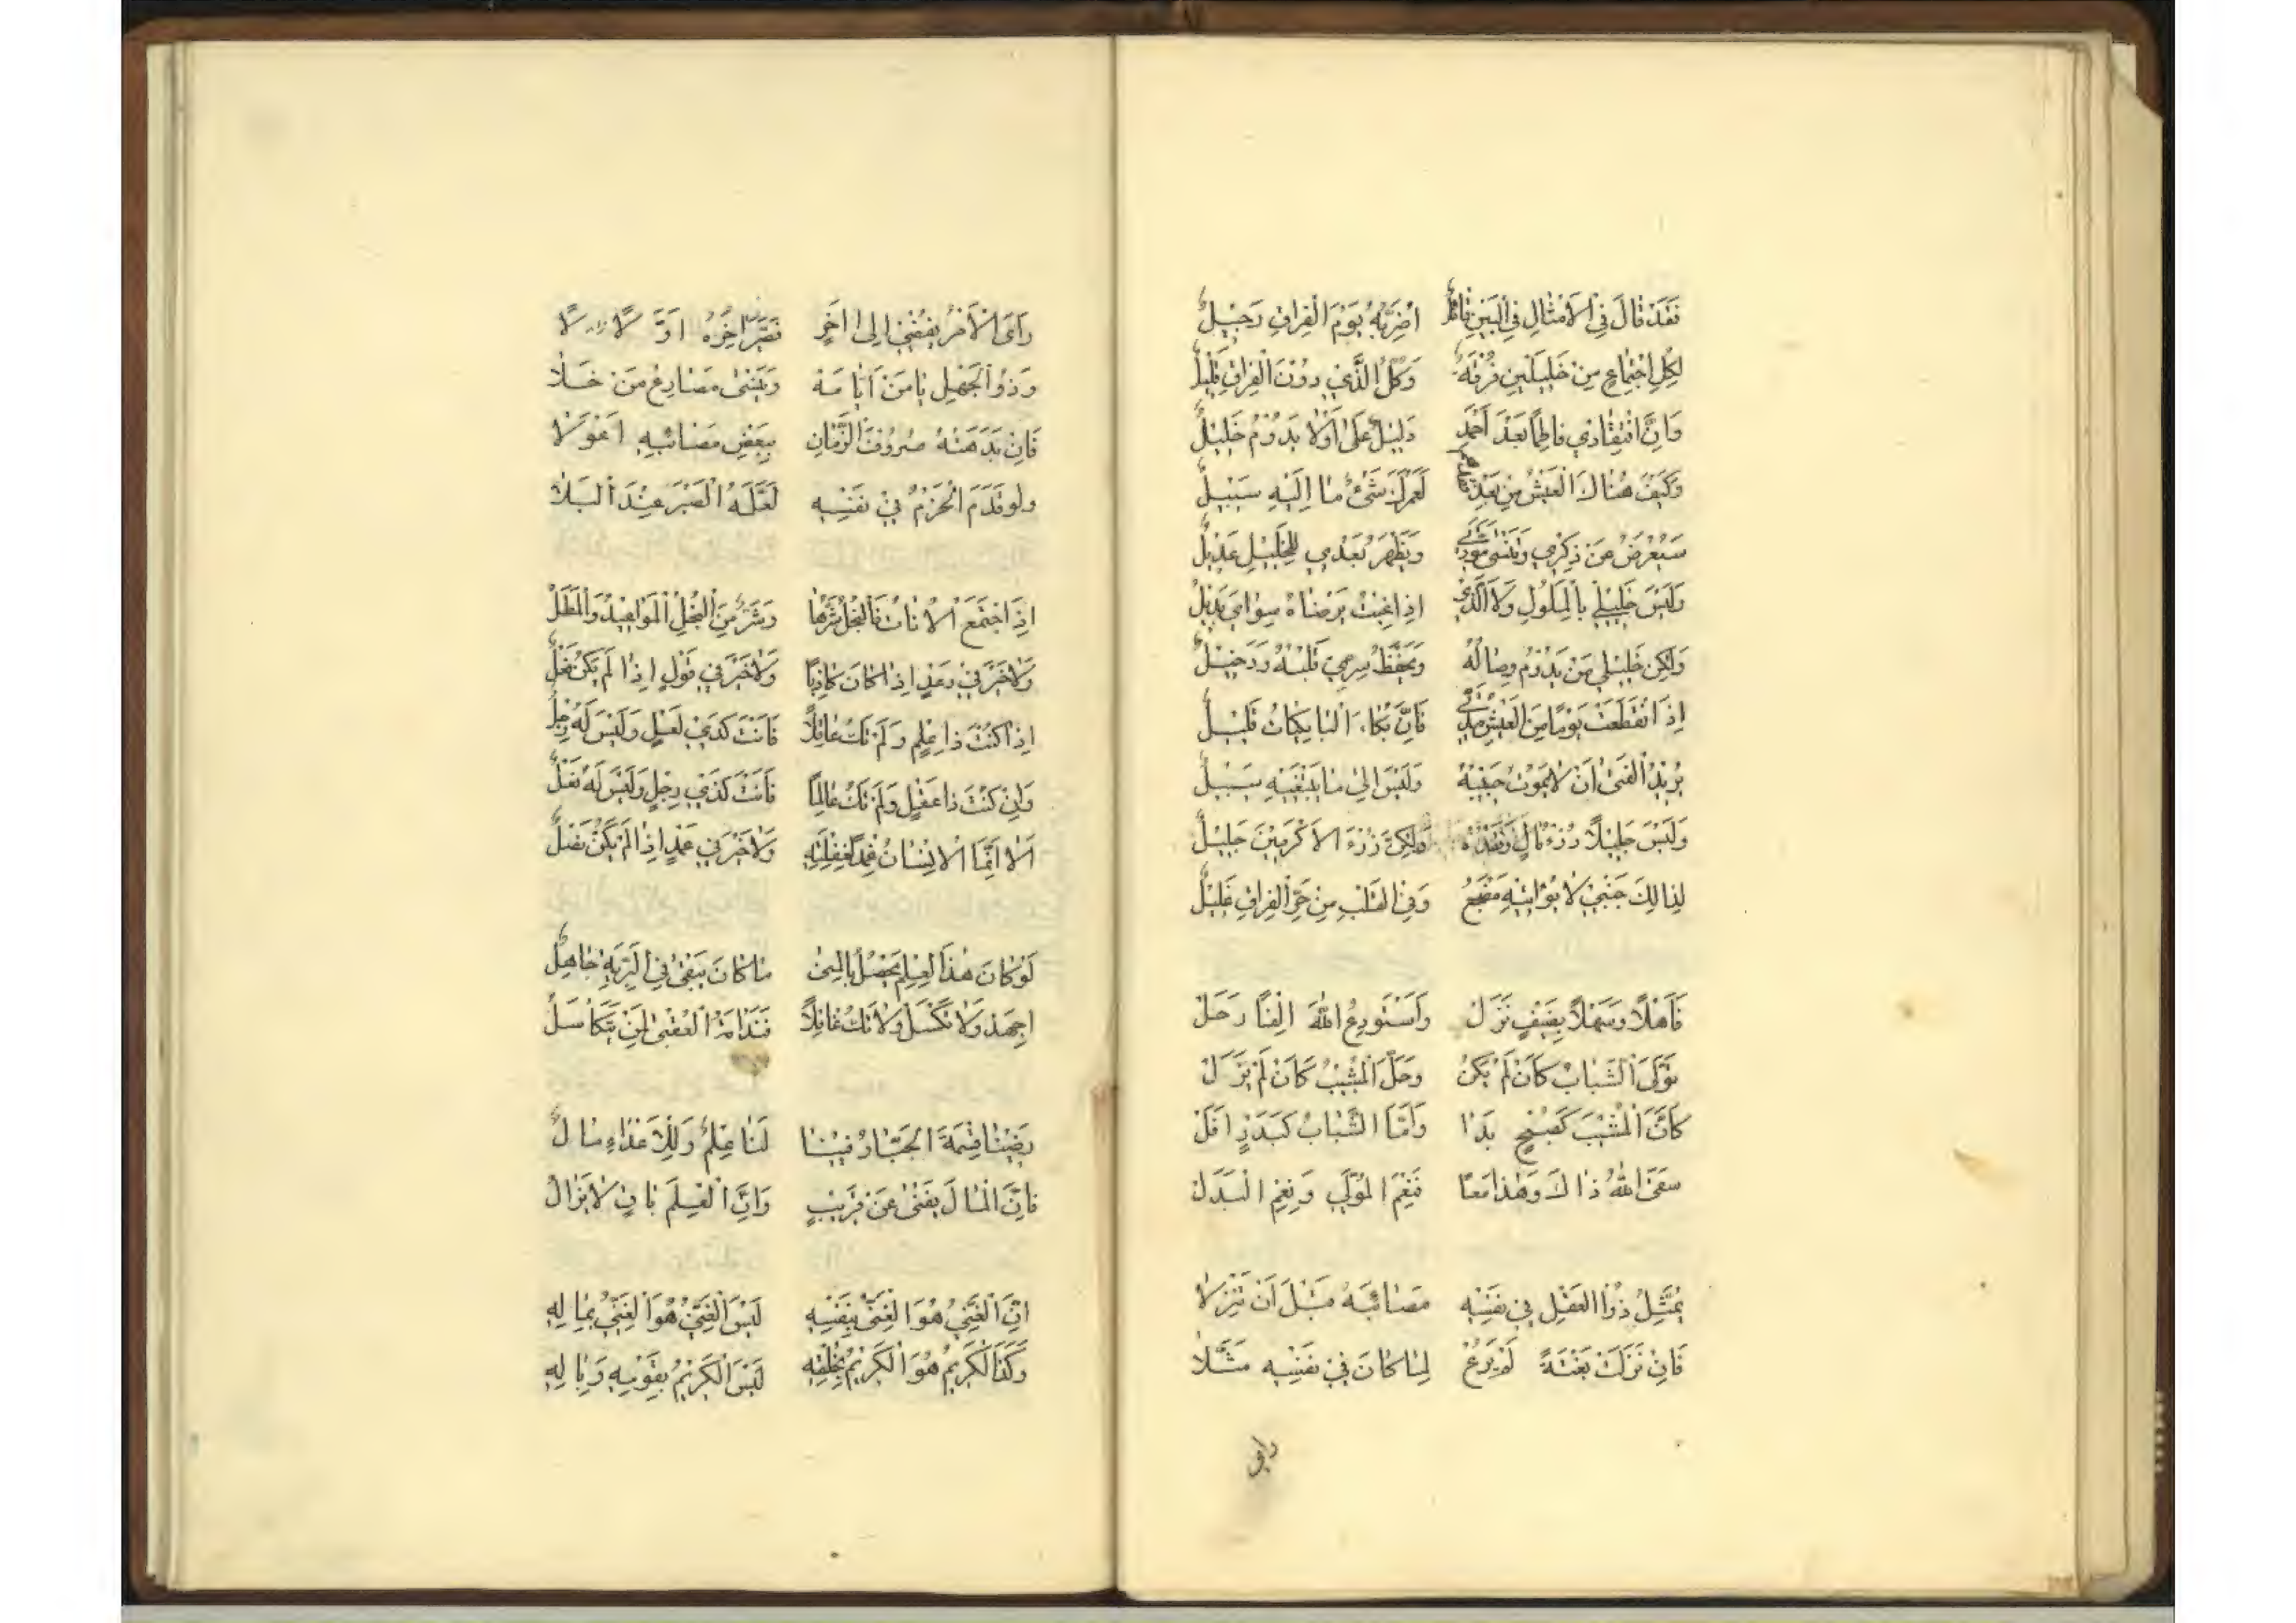 فَقَدْ قَالَ فِي الْاَمْثَالِ فِي الْبَيْنِ قَائِلٌ اَضَرَّ بِهِ يَوْمَ الْفِرَاقِ رَحِيْلٌ
لِكُلِّ اجْتِمَاعٍ مِنْ خَلِيْلَيْنِ فُرْقَةٌ وَكُلُّ الَّذِيْ دُوْنَ الْفِرَاقِ قَلِيْلٌ
وَاِنَّ افْتِقَادِيْ فَاطِمًا بَعْدَ اَحْمَدٍ دَلِيْلٌ عَلٰى اَنْ لَا يَدُوْمَ خَلِيْلٌ
وَكَيْفَ هُنَاكَ الْعَيْشُ مِنْ بَعْدِ لَعَمْرُكَ شَيْءٌ مَا اِلَيْهِ سَبِيْلٌ
سَيُعْرَضُ عَنْ ذِكْرِيْ وَيُنْسٰى مَوَدَّتِيْ وَيَظْهَرُ بَعْدِيْ لِلْخَلِيْلِ عَدِيْلٌ
وَلَيْسَ خَلِيْلِيْ بِالْمَلُوْلِ وَلَا الَّذِيْ اِذَا غِبْتُ يَرْضَاهُ سِوَايَ بَدِيْلٌ
وَلٰكِنْ خَلِيْلِيْ مَنْ يَدُوْمُ وِصَالُهُ وَيَحْفَظُ سِرِّيْ قَلْبُهُ وَدَخِيْلٌ
اِذَا انْقَطَعَتْ يَوْمًا مِنَ الْعَيْشِ مُدَّتِيْ فَاِنَّ بُكَاءَ الْبَاكِيَاتِ قَلِيْلٌ
يُرِيْدُ الْفَتٰى اَنْ لَا يَمُوْتَ حَبِيْبُهُ وَلَيْسَ اِلٰى مَا يَبْتَغِيْهِ سَبِيْلٌ
وَلَيْسَ جَلِيْلًا رُزْءُ مَالٍ وَفَقْدُهُ وَلٰكِنَّ رُزْءَ الْاَكْرَمِيْنَ جَلِيْلٌ
لِذَالِكَ جَنْبِيْ لَا يُوَاتِيْهِ مَضْجَعٌ وَفِي الْقَلْبِ مِنْ حَرِّ الْفِرَاقِ غَلِيْلٌ
فَاَهْلًا وَسَهْلًا بِضَيْفٍ نَزَلَ وَاَسْتَوْدِعُ اللهَ اِلْفًا رَحَلَ
تَوَلَّى الشَّبَابُ كَاَنْ لَمْ يَكُنْ وَحَلَّ الْمَشِيْبُ كَاَنْ لَمْ يَزَلْ
كَاَنَّ الْمَشِيْبَ كَصُبْحٍ بَدَا وَاَمَّا الشَّبَابُ كَبَدْرٍ اَفَلَ
سَقَى اللهُ ذَاكَ وَهٰذَا مَعًا فَنِعْمَ الْمُوَلِّيْ وَنِعْمَ الْبَدَلُ
يُمَثِّلُ ذُوْ الْعَقْلِ فِيْ نَفْسِهِ مَصَائِبَهُ قَبْلَ اَنْ تَنْزِلَا
فَاِنْ نَزَلَتْ بَغْتَةً لَمْ يُرَعْ لِمَا كَانَ فِيْ نَفْسِهِ مَثَّلَا
رای
رَاَى الْاَمْرَ يُفْضِيْ اِلٰى اٰخِرٍ فَصَيَّرَ اٰخِرَهُ اَوَّلًا
وَذُو الْجَهْلِ يَاْمَنُ اَيَّامَهُ وَيَنْسٰى مَصَارِعَ مَنْ خَلَا
فَاِنْ بَدَهَتْهُ صُرُوْفُ الزَّمَانِ بِبَعْضِ مَصَائِبِهِ اَعْوَلَا
وَلَوْ قَدَّمَ الْحَزْمَ فِيْ نَفْسِهِ لَعَلَّمَهُ الصَّبْرَ عِنْدَ الْبَلَا
اِذَا اجْتَمَعَ الْاٰفَاتُ فَالْبُخْلُ شَرُّهَا وَشَرٌّ مِنَ الْبُخْلِ الْمَوَاعِيْدُ وَالْمَطْلُ
وَلَا خَيْرَ فِيْ وَعْدٍ اِذَا كَانَ كَاذِبًا وَلَا خَيْرَ فِيْ قَوْلٍ اِذَا لَمْ يَكُنْ فِعْلٌ
اِذَا كُنْتَ ذَا عِلْمٍ وَلَمْ تَكُ عَاقِلًا فَاَنْتَ كَذِيْ نَعْلٍ وَلَيْسَ لَهُ رِجْلٌ
وَاِنْ كُنْتَ ذَا عَقْلٍ وَلَمْ تَكُ عَالِمًا فَاَنْتَ كَذِيْ رِجْلٍ وَلَيْسَ لَهُ نَعْلٌ
اَلَا اِنَّمَا الْاِنْسَانُ غِمْدٌ لِعَقْلِهِ وَلَا خَيْرَ فِيْ غِمْدٍ اِذَا لَمْ يَكُنْ نَصْلٌ
لَوْ كَانَ هٰذَا الْعِلْمُ يَحْصُلُ بِالْمُنٰى مَا كَانَ يَبْقٰى فِي الْبَرِيَّةِ جَاهِلٌ
اِجْهَدْ وَلَا تَكْسَلْ وَلَا تَكُ غَافِلًا فَنَدَامَةُ الْعُقْبٰى لِمَنْ يَتَكَاسَلُ
رَضِيْنَا قِسْمَةَ الْجَبَّارِ فِيْنَا لَنَا عِلْمٌ وَلِلْاَعْدَاءِ مَالٌ
فَاِنَّ الْمَالَ يَفْنٰى عَنْ قَرِيْبٍ وَاِنَّ الْعِلْمَ بَاقٍ لَا يَزَالُ
اِنَّ الْغَنِيَّ هُوَ الْغَنِيُّ بِنَفْسِهِ لَيْسَ الْغَنِيُّ هُوَ الْغَنِيُّ بِمَالِهِ
وَكَذَا الْكَرِيْمُ هُوَ الْكَرِيْمُ بِخُلْقِهِ لَيْسَ الْكَرِيْمُ بِقَوْمِهِ وَبِاٰلِهِ